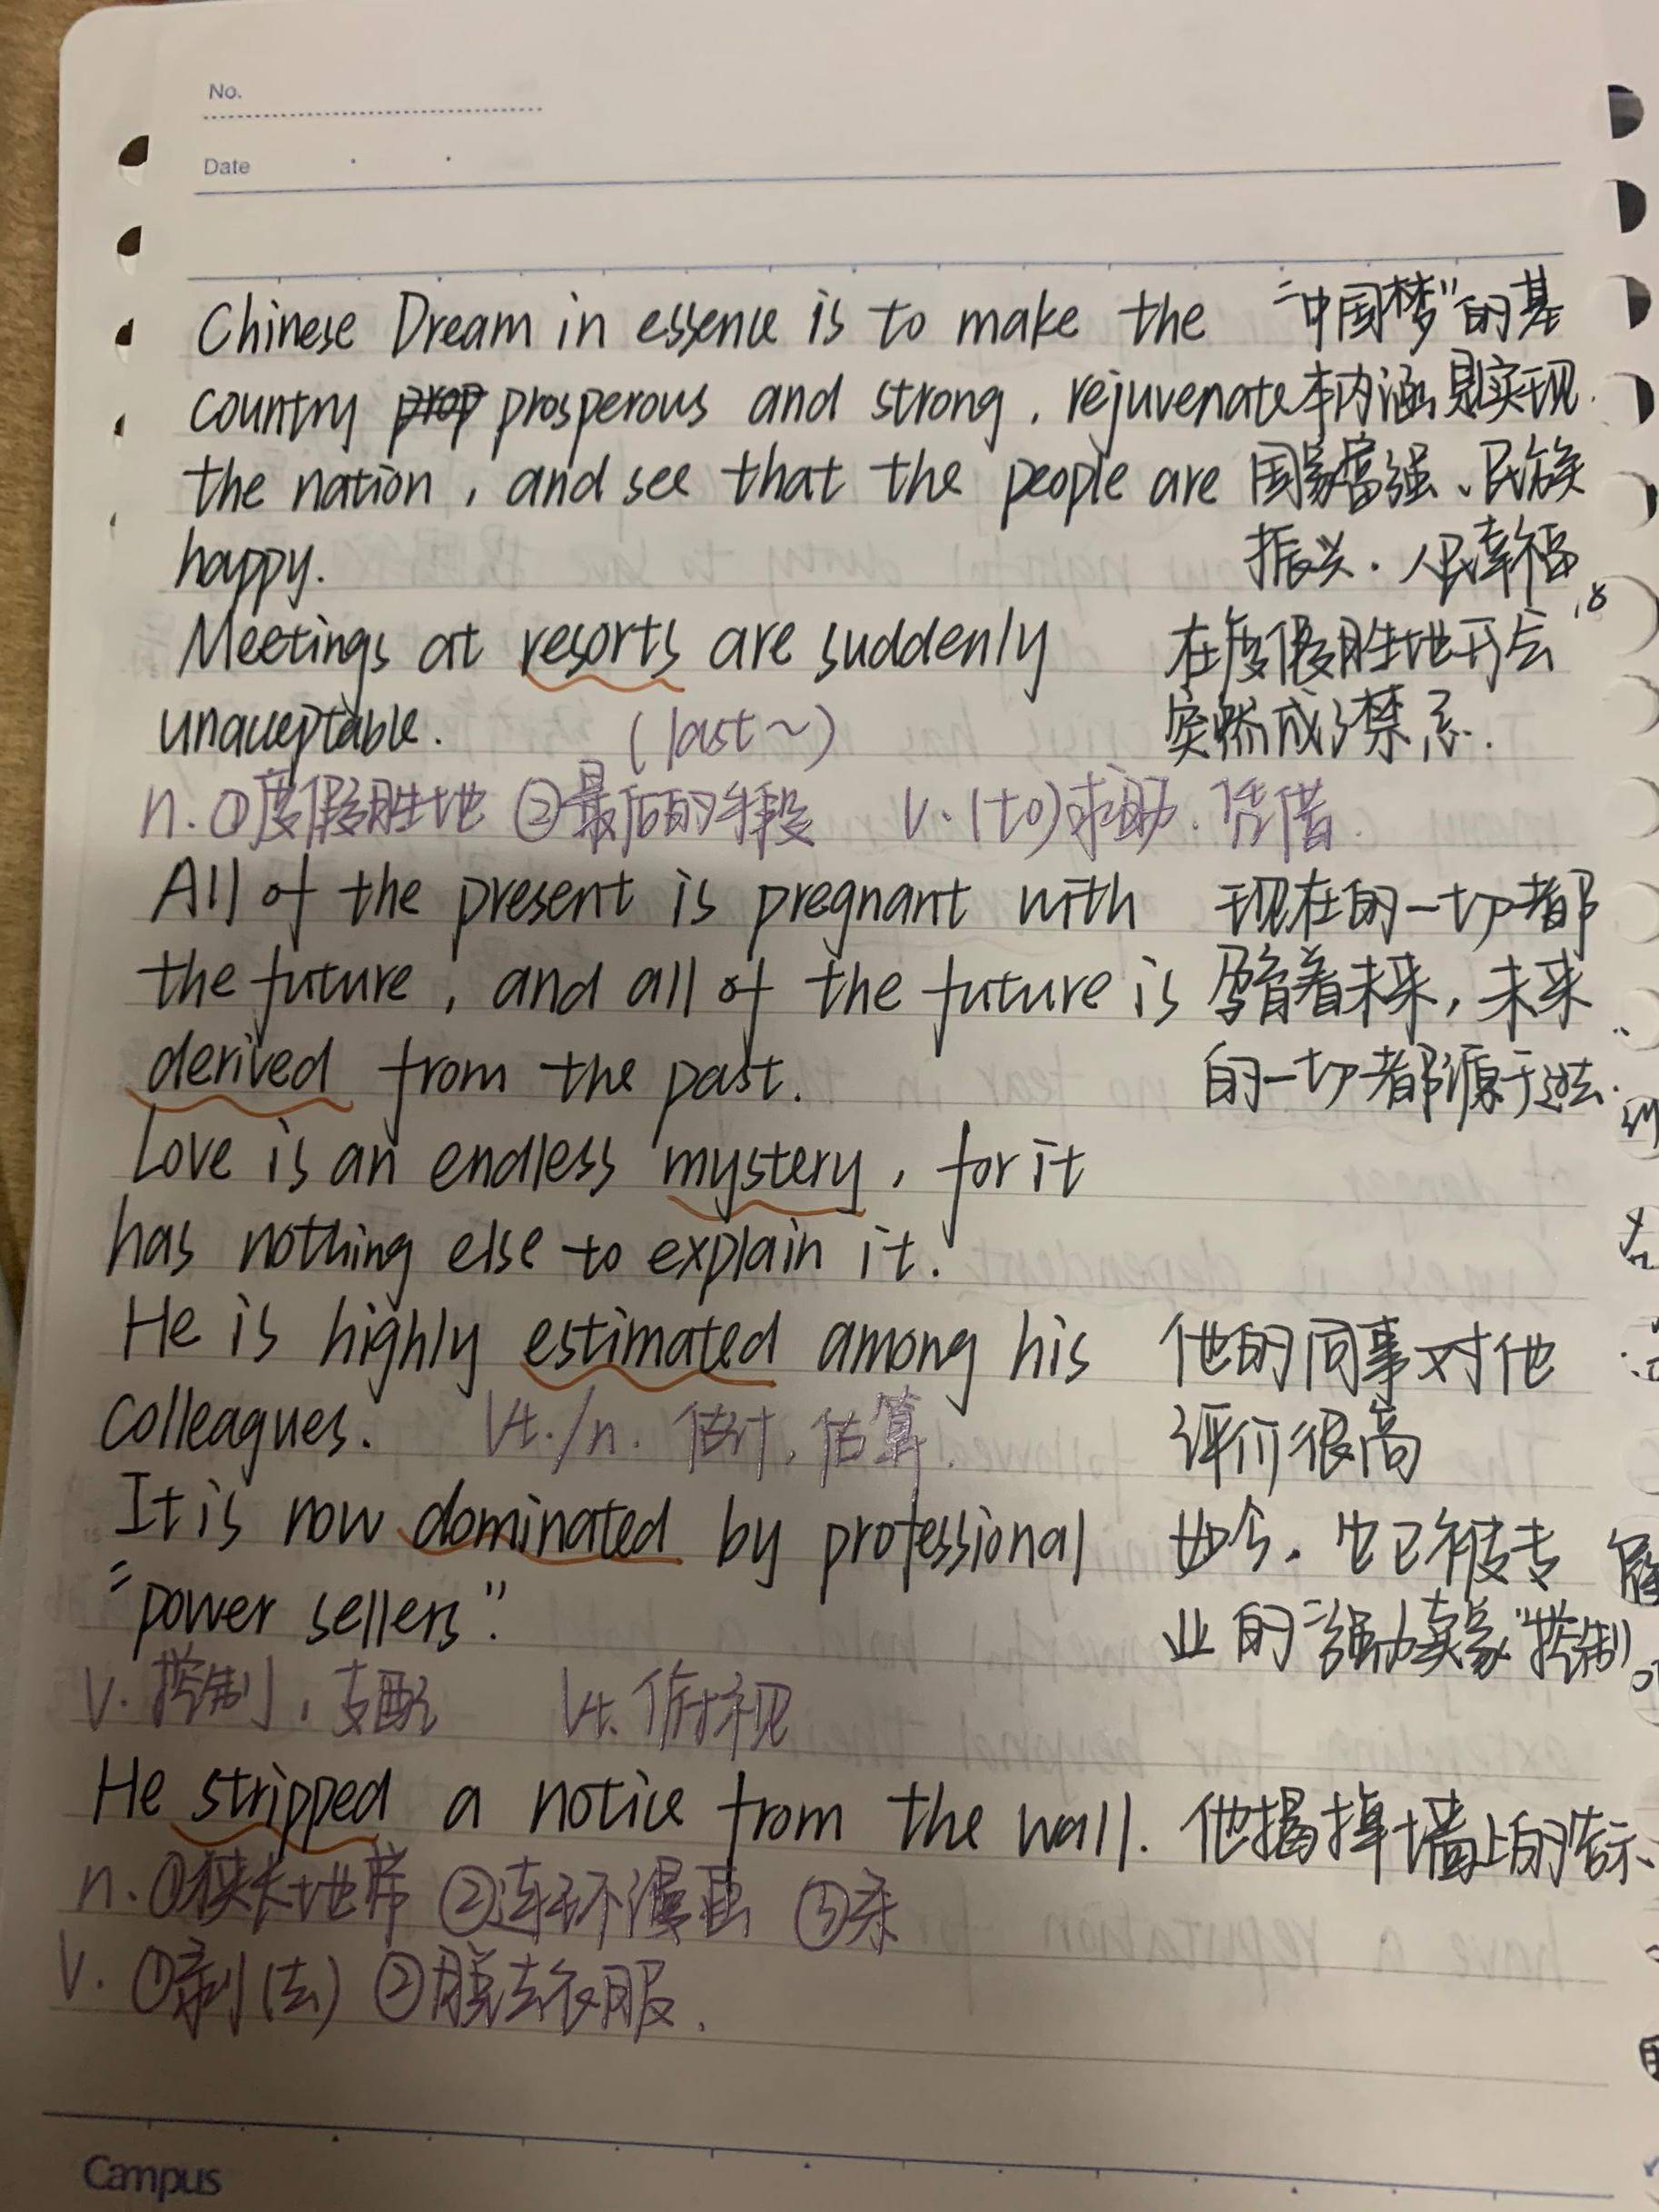 No.
Date
Chinese Dream in essence is to make the "中国梦"的基
country prop prosperous and strong, rejuvenate 本内涵是实现
the nation, and see that the people are 国家富强、民族
happy. 振兴.人民幸福
Meetings at resorts are suddenly 在度假胜地开会
unacceptable. (last~) 突然成了禁忌.
n.①度假胜地 ②最后的手段 v.(to)求助.凭借.
All of the present is pregnant with 现在的一切都
the future, and all of the future is 孕育着未来,未来
derived from the past. 的一切都源于过去.
Love is an endless mystery, for it
has nothing else to explain it.
He is highly estimated among his 他的同事对他
colleagues. vt./n. 估计,估算. 评价很高
It is now dominated by professional 如今,它已被专
"power sellers". 业的"强力卖家"控制
v.控制,支配 vt.俯视
He stripped a notice from the wall. 他揭掉墙上的告示.
n.①狭长地带 ②连环漫画 ③条
v.①剥(去) ②脱去衣服.
Campus